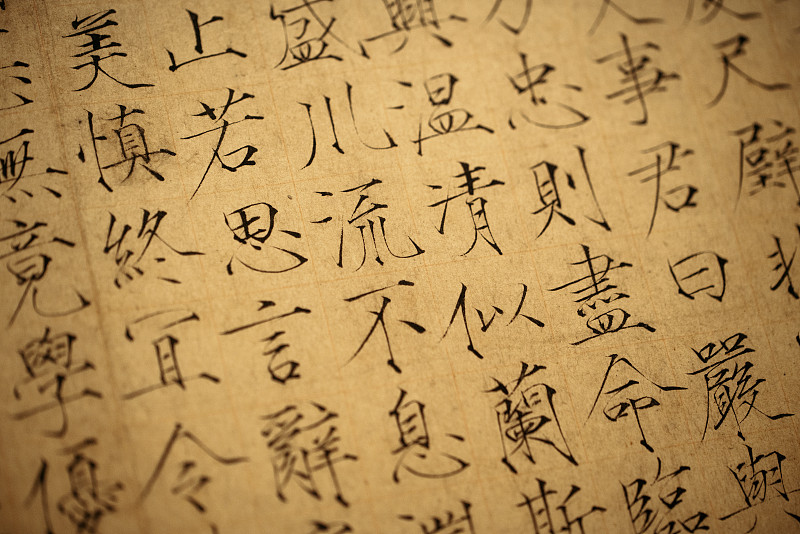 尺璧非
事君曰嚴與
忠則盡命臨
興温清似蘭斯
盛川流不息淵
上若思言辭
美慎終宜令
無竟學優